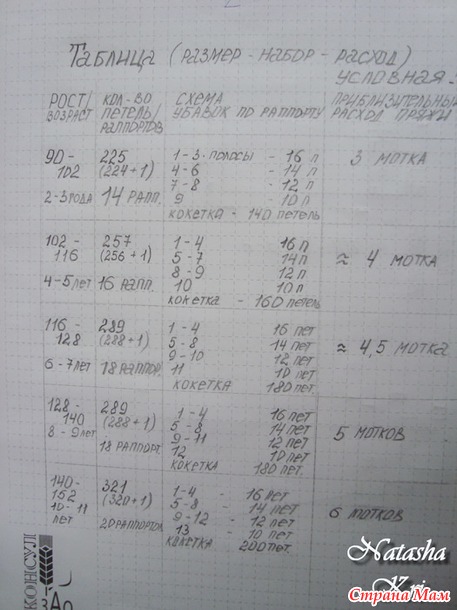 Таблица (размер - набор - расход)
условная.
РОСТ/ВОЗРАСТ КОЛ-ВО ПЕТЕЛЬ/РАППОРТОВ СХЕМА УБАВОК ПО РАППОРТУ ПРИБЛИЗИТЕЛЬНЫЙ РАСХОД ПРЯЖИ
90 - 225 1-3 полосы - 16 п 3 МОТКА
102 (224+1) 4-6 - 14 п
7-8 - 12 п
2-3 года 14 РАПП. 9 - 10 п
КОКЕТКА - 140 петель
102 - 257 1-4 16 п
116 (256+1) 5-7 14 п ≈ 4 МОТКА
8-9 12 п
4-5 лет 16 РАПП. 10 10 п
КОКЕТКА - 160 петель
116 - 289 1-4 16 пет
128 (288+1) 5-8 14 пет ≈ 4,5 МОТКА
9-10 12 пет
6-7 лет 18 РАППОР. 11 10 пет
КОКЕТКА 180 пет.
128 - 289 1-4 16 пет
140 (288+1) 5-8 14 пет 5 МОТКОВ
8-9 лет 9-11 12 пет
18 РАППОРТ. 12 10 пет
КОКЕТКА 180 пет.
140 - 321 1-4 - 16 пет
152 (320+1) 5-8 - 14 пет 6 МОТКОВ
10-11 9-12 - 12 пет
лет 20 РАППОРТОВ 13 - 10 пет
КОКЕТКА 200 пет.
КОНСУЛ
ЗАО
Natasha
Kri
Страна Мам